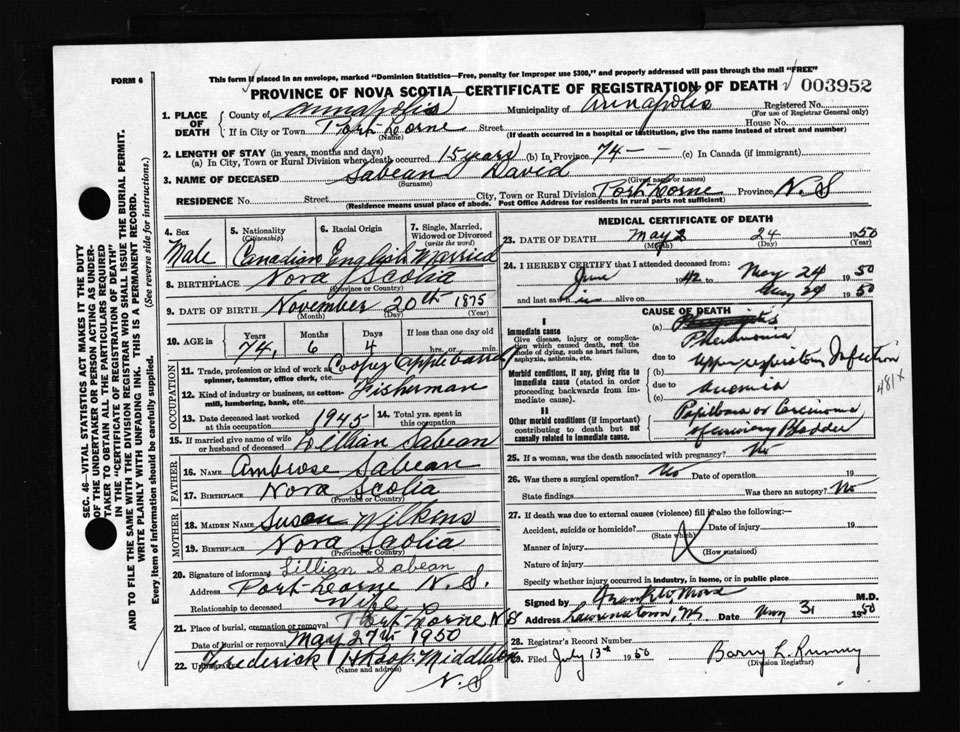 FORM 6
This form if placed in an envelope, marked "Dominion Statistics—Free, penalty for improper use $300," and properly addressed will pass through the mail "FREE"
PROVINCE OF NOVA SCOTIA—CERTIFICATE OF REGISTRATION OF DEATH 003952
1. PLACE OF DEATH
County of Annapolis Municipality of Annapolis Registered No.
(For use of Registrar General only)
If in City or Town Port Lorne Street House No.
(Name) (If death occurred in a hospital or institution, give the name instead of street and number)
2. LENGTH OF STAY (in years, months and days)
(a) In City, Town or Rural Division where death occurred 15 years (b) In Province 74 — — (c) In Canada (if immigrant)
3. NAME OF DECEASED Sabean David
(Surname) (Given name or names)
RESIDENCE No. Street City, Town or Rural Division Port Lorne Province N.S
(Residence means usual place of abode. Post Office Address for residents in rural parts not sufficient)
4. Sex Male
5. Nationality (Citizenship) Canadian
6. Racial Origin English
7. Single, Married, Widowed or Divorced (write the word) Married
8. BIRTHPLACE Nova Scotia
(Province or Country)
9. DATE OF BIRTH November 20th 1875
(Month) (Day) (Year)
10. AGE in Years Months Days If less than one day old
74 6 4 hrs. or min.
OCCUPATION
11. Trade, profession or kind of work as spinner, teamster, office clerk, etc.
12. Kind of industry or business, as cotton-mill, lumbering, bank, etc. Fisherman
13. Date deceased last worked at this occupation 1945
14. Total yrs. spent in this occupation
15. If married give name of wife or husband of deceased Lillian Sabean
FATHER
16. NAME Ambrose Sabean
17. BIRTHPLACE Nova Scotia
(Province or Country)
MOTHER
18. MAIDEN NAME Susan Wilkins
19. BIRTHPLACE Nova Scotia
(Province or Country)
20. Signature of informant Lillian Sabean
Address Port Lorne N.S.
Relationship to deceased Wife
21. Place of burial, cremation or removal Port Lorne N S
Date of burial or removal May 27th 1950
22. Undertaker Frederick Middleton
(Name and address)
N.S
MEDICAL CERTIFICATE OF DEATH
23. DATE OF DEATH May 24 1950
(Month) (Day) (Year)
24. I HEREBY CERTIFY that I attended deceased from:
June 1942 to May 24 1950
and last saw him alive on May 24 1950
CAUSE OF DEATH
I
Immediate cause
Give disease, injury or complication which caused death, not the mode of dying, such as heart failure, asphyxia, asthenia, etc.
(a) Pneumonia
due to
Morbid conditions, if any, giving rise to immediate cause (stated in order proceeding backwards from immediate cause).
(b) Upper respiratory Infection
due to
(c) Anemia
481x
II
Other morbid conditions (if important) contributing to death but not causally related to immediate cause.
Papilloma or Carcinoma
of urinary Bladder
25. If a woman, was the death associated with pregnancy? No
26. Was there a surgical operation? No Date of operation 19
State findings Was there an autopsy? No
27. If death was due to external causes (violence) fill in also the following:
Accident, suicide or homicide? Date of injury 19
(State which)
Manner of injury
(How sustained)
Nature of injury
Specify whether injury occurred in industry, in home, or in public place
Signed by M.D.
Address Lawrencetown, N.S. Date May 31 1950
28. Registrar's Record Number
Filed July 13th 1950 Barry L. Rumney
(Division Registrar)
SEC. 46—VITAL STATISTICS ACT MAKES IT THE DUTY
OF THE UNDERTAKER OR PERSON ACTING AS UNDERTAKER TO OBTAIN ALL THE PARTICULARS REQUIRED
IN THE "CERTIFICATE OF REGISTRATION OF DEATH"
AND TO FILE THE SAME WITH THE DIVISION REGISTRAR WHO SHALL ISSUE THE BURIAL PERMIT.
WRITE PLAINLY WITH UNFADING INK. THIS IS A PERMANENT RECORD.
Every item of information should be carefully supplied. (See reverse side for instructions.)